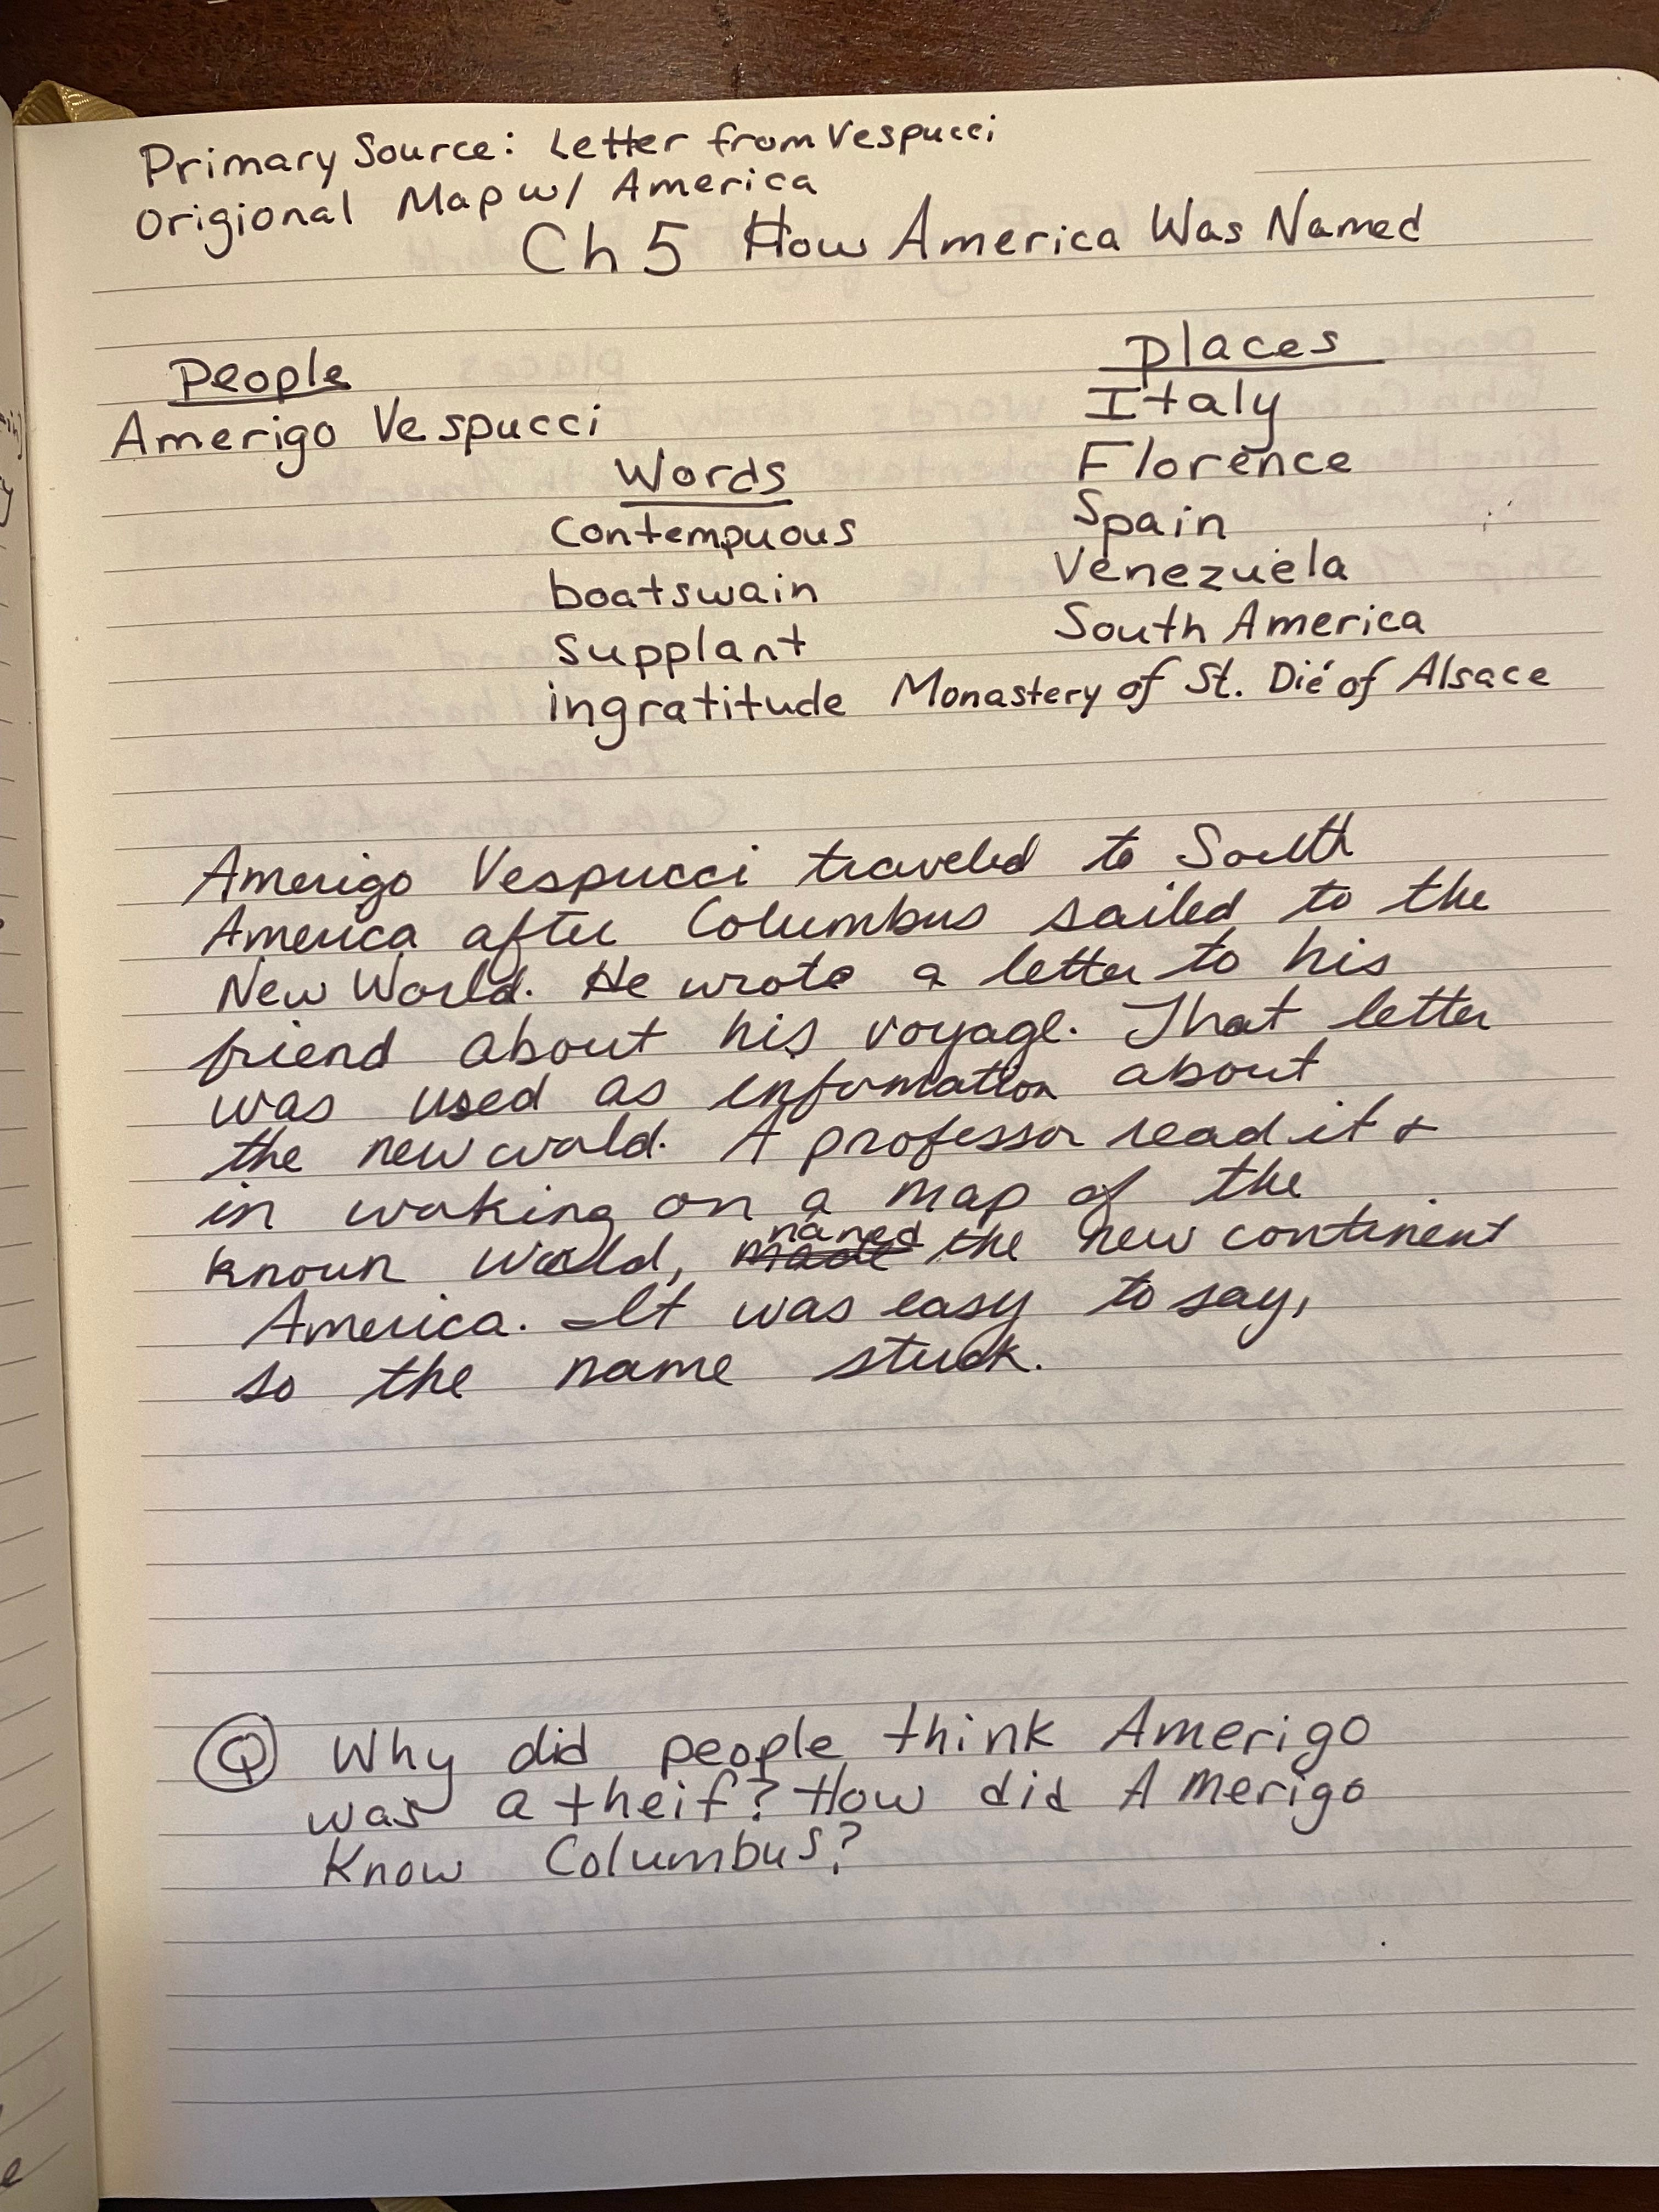 Primary Source: Letter from Vespucci
Origional Map w/ America
Ch 5 How America Was Named
People
Amerigo Vespucci
Words
Contempuous
boatswain
Supplant
ingratitude
Places
Italy
Florence
Spain
Venezuela
South America
Monastery of St. Dié of Alsace
Amerigo Vespucci traveled to South
America after Columbus sailed to the
New World. He wrote a letter to his
friend about his voyage. That letter
was used as information about
the new world. A professor read it &
in working on a map of the
known world, made named the new continent
America. It was easy to say,
so the name stuck.
Q Why did people think Amerigo
was a theif? How did Amerigo
Know Columbus?